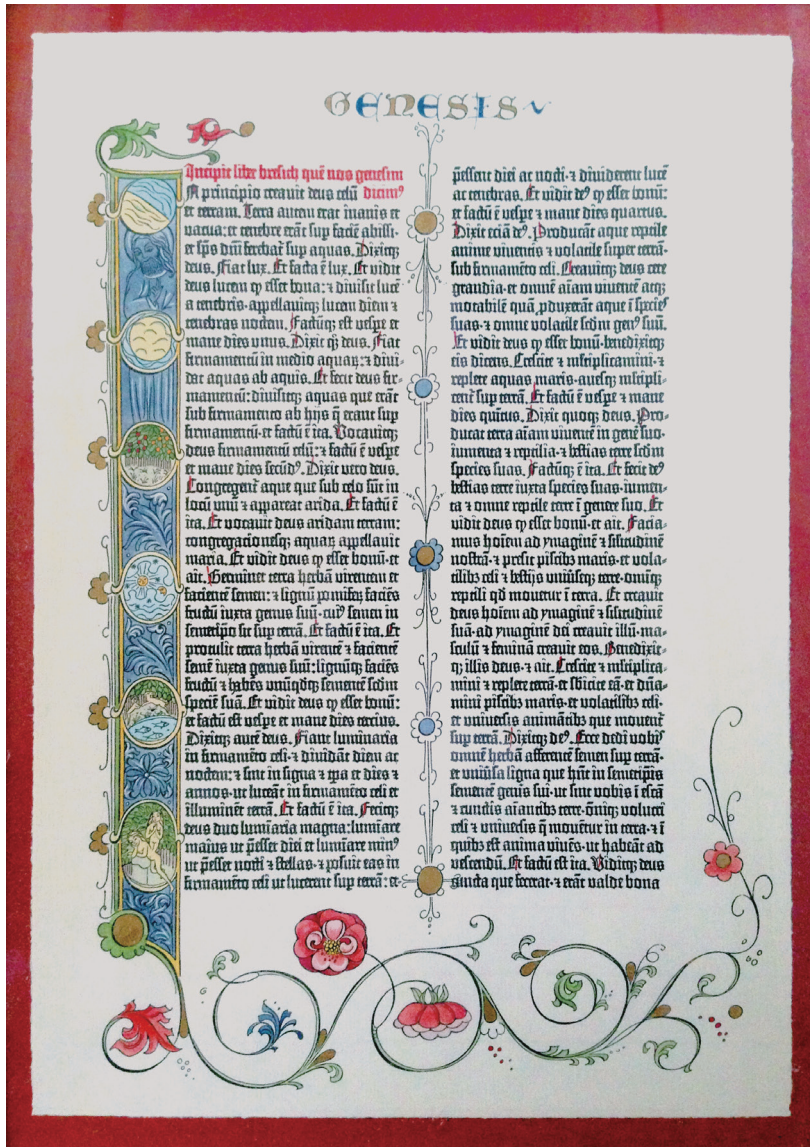 GENESIS
Incipit liber bresich quē nos genesim
A principio creavit deus celū dicimꝰ
et terram. Terra autem erat inanis et
vacua: et tenebre erāt sup faciē abissi:
et sp̄s dn̄i ferebat̄ sup aquas. Dixitqꝫ
deus. Fiat lux. Et facta ē lux. Et vidit
deus lucem ꝙ esset bona: ⁊ divisit lucē
a tenebris·appellavitqꝫ lucem diem ⁊
tenebras noctem. Factūqꝫ est vespe et
mane dies unus. Dixit qꝫ deus. Fiat
firmamentū in medio aquaꝝ: ⁊ divi-
dat aquas ab aquis. Et fecit deus fir-
mamentū: divisitqꝫ aquas que erāt
sub firmamento ab hijs q̄ erant sup
firmamentū· et factū ē ita. Vocavitqꝫ
deus firmamentū celū: ⁊ factū ē vespe
et mane dies secūdꝰ. Dixit vero deus.
Congregent̄ aque que sub celo sūt in
locū unū ⁊ appareat arida. Et factū ē
ita. Et vocavit deus aridam terram:
congregacionesqꝫ aquaꝝ appellavit
maria. Et vidit deus ꝙ esset bonū· et
ait. Germinet terra herbā virentem et
facientē semen: ⁊ lignū pomiferꝫ faciēs
fructū iuxta genus suū· cuiꝰ semen in
semetipo sit sup terrā. Et factū ē ita. Et
protulit terra herbā virentē ⁊ facientē
semē iuxta genus suū: lignūqꝫ faciēs
fructū ⁊ habēs unūqdqꝫ sementē scdm
speciē suā. Et vidit deus ꝙ esset bonū:
et factū est vespe et mane dies tercius.
Dixitqꝫ autē deus. Fiant luminaria
in firmamēto celi· ⁊ dividāt diem ac
noctem: ⁊ sint in signa ⁊ tp̄a et dies ⁊
annos· ut luceāt in firmamēto celi et
illuminēt terrā. Et factū ē ita. Fecitqꝫ
deus duo lumīaria magna: lumīare
maius ut p̄esset diei et lumīare minꝰ
ut p̄esset nocti ⁊ stellas· ⁊ posuit eas in
firmamēto celi ut lucerent sup terrā: et
p̄essent diei ac nocti· ⁊ dividerent lucē
ac tenebras. Et vidit deꝰ ꝙ esset bonū:
et factū ē vespe ⁊ mane dies quartus.
Dixit eciā deꝰ. Producāt aque reptile
anime viventis ⁊ volatile super terrā·
sub firmamēto celi. Creavitqꝫ deus cete
grandia· et omnē aīam viventē atqꝫ
motabilē quā pduxerāt aque ī speciesꝰ
suas· ⁊ omne volatile scdm genꝰ suū.
Et vidit deus ꝙ esset bonū· benedixitqꝫ
eis dicens. Crescite ⁊ mltiplicamini· ⁊
replete aquas maris· avesqꝫ mltipli-
cent̄ sup terrā. Et factū ē vespe ⁊ mane
dies quītus. Dixit quoqꝫ deus. Pro-
ducat terra aīam viventē in genē suo·
iumenta ⁊ reptilia· ⁊ bestias terre scdm
species suas. Factūqꝫ ē ita. Et fecit deꝰ
bestias terre iuxta species suas· iumen-
ta ⁊ omne reptile terre ī genere suo. Et
vidit deus ꝙ esset bonū· et ait. Facia-
mus hoīem ad ymaginē ⁊ silitudinē
nostrā· ⁊ presit piscibꝫ maris· et vola-
tilibꝫ celi ⁊ bestijs univ̄seqꝫ terre· omīqꝫ
reptili qd movetur ī terra. Et creavit
deus hoīem ad ymaginē ⁊ silitudinē
suā· ad ymaginē dei creavit illū· ma-
sculū ⁊ feminā creavit eos. Benedixit-
qꝫ illis deus· ⁊ ait. Crescite ⁊ mltiplica-
mini ⁊ replete terrā· et sbicite eā· et dn̄a-
mini piscibꝫ maris· et volatilibꝫ celi·
et universis animātibꝫ que moventꝰ
sup terrā. Dixitqꝫ deꝰ. Ecce dedi vobisꝰ
omnē herbā afferentē semen sup terrā·
et univ̄sa ligna que hn̄t in semetipīs
sementē genīs sui· ut sint vobis ī escā
⁊ cunctis aīantibꝫ terre· oīniqꝫ volucri
celi ⁊ universis q̄ movētur in terra· ⁊ ī
quibꝫ est anima vivēs· ut habeāt ad
vescendū. Et factū est ita. Viditqꝫ deus
cuncta que fecerat· ⁊ erāt valde bona